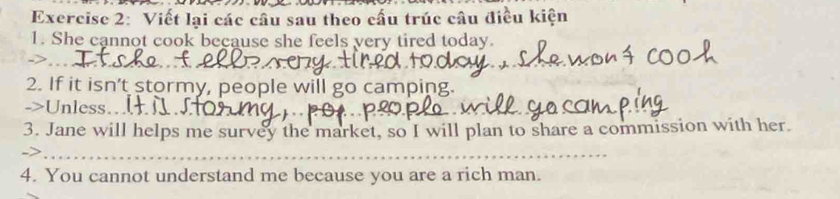 Exercise 2: Viết lại các câu sau theo cấu trúc câu điều kiện
1. She cannot cook because she feels very tired today.
->... If she feells very tired today, she won't cook
2. If it isn't stormy, people will go camping.
->Unless... It is stormy, people will go camping
3. Jane will helps me survey the market, so I will plan to share a commission with her.
->
4. You cannot understand me because you are a rich man.